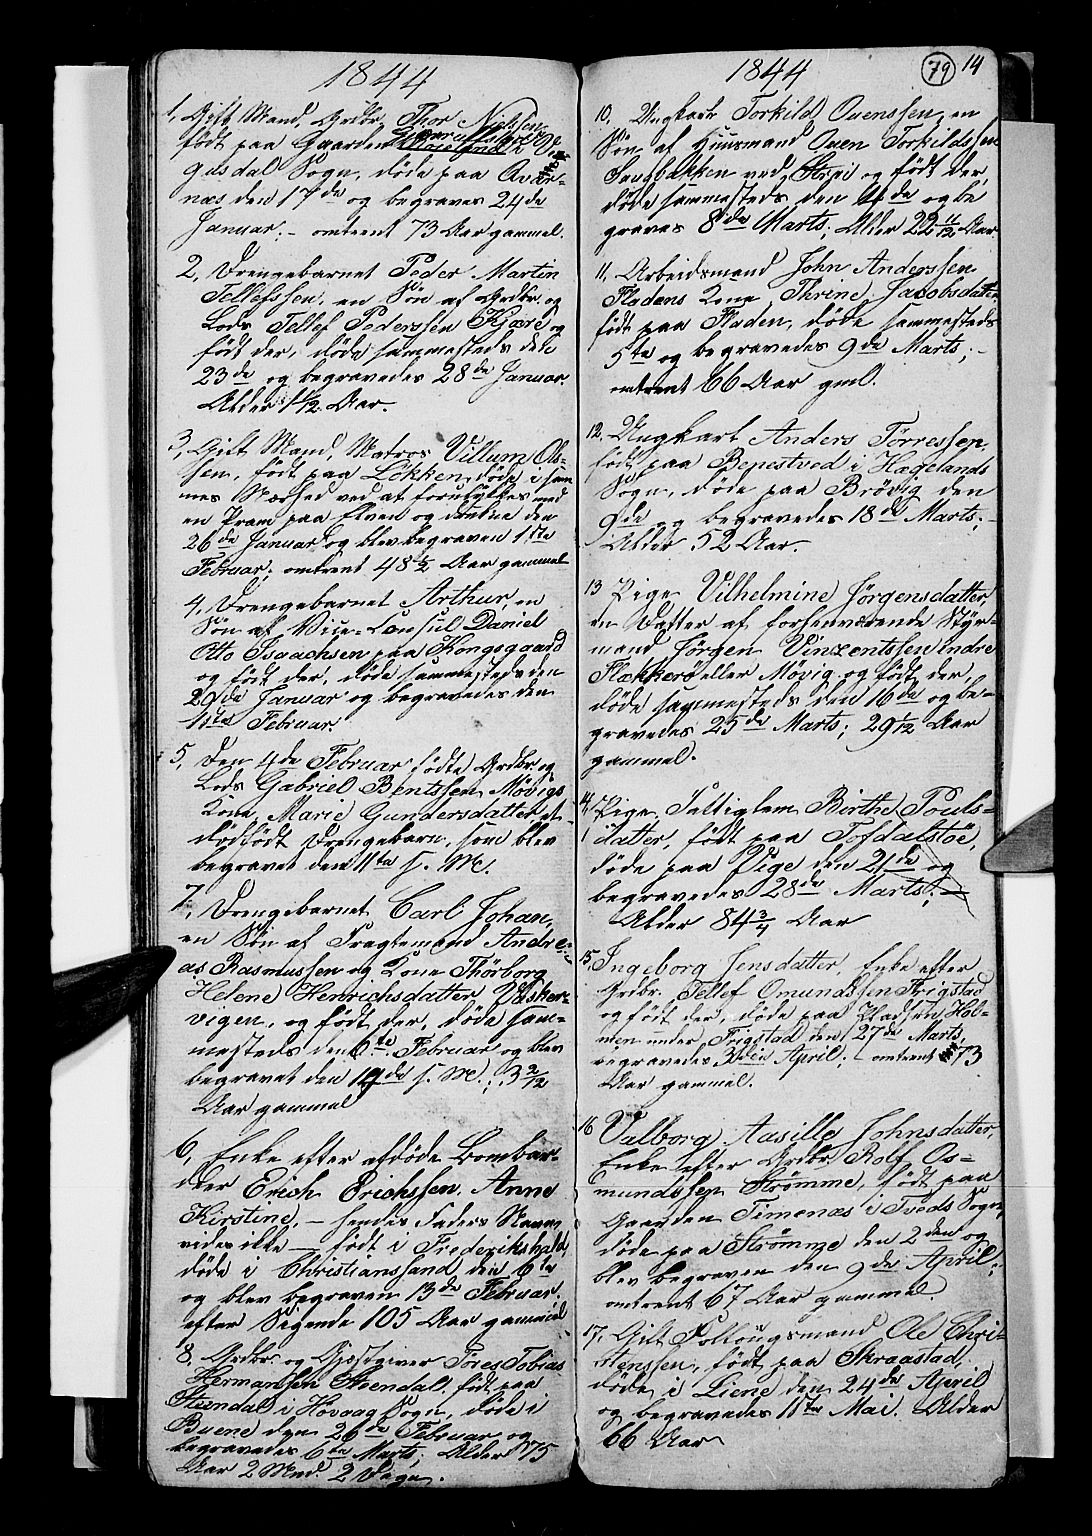 1844
1, Gift Mand, Grdbr. Thor Nielssen
født paa Gaarden i Ve-
gusdal Sogn, døde paa Avar-
næs den 17de og begraves 24de
Januar; - omtrent 73 Aar gammel.
2, Drengebarnet Peder Martin
Tellefssen, en Søn af Grdbr. og
Lods Tellef Pederssen Kjære og
født der, døde sammesteds den
23de og begravedes 28de Januar.
Alder 1 1/12 Aar.
3, Gift Mand, Matros Villum Ols-
sen, født paa Løkken, døde i sam-
mes Nærhed ved at forulykkes med
en Pram paa Elven og druknede den
26de Januar og blev begraven 1ste
Februar; omtrent 48 1/2 Aar gammel
4, Drengebarnet Arthur, en
Søn af Vice-Consul Daniel
Otto Isaachsen paa Kongsgaard
og født der, døde sammesteds den
29de Januar og begravedes den
11te Februar.
5, Den 4de Februar fødte Grdbr. og
Lods Gabriel Bentssen Møvigs
Kone, Marie Gundersdatter et
dødfødt Drengebarn, som blev
begravet den 11te s. M.
7, Drengebarnet Carl Johan,
en Søn af Fragtemand Andre-
as Rasmussen og Kone Thorborg
Helene Henrichsdatter, Vasker-
vigen, og født der, døde sam-
mesteds den 6te Februar og blev
begravet den 12de s. M.; 3 2/12
Aar gammel
6, Enke efter afdøde Bombar-
deer Erich Erichssen, Anne
Kirstine, - hendes Faders Navn
vides ikke - født i Frederikshald,
døde i Christianssand den 6te
og blev begraven 13de Februar.
efter Sigende 105 Aar gammel
8, Grdbr. og Gjæstgiver Tores Tobias
Hermanssen Steendal, født paa
Steendal i Høvaag Sogn, døde i
Buene den 26de Februar og
begravedes 6te Marts; Alder 75
Aar 2 Mnd. 2 Dage.
1844
79 14
10, Ungkarl Torkild Ouenssen, en
Søn af Huusmand Ouen Torkildssen
Saugbakken ved Strai og født der,
døde sammesteds den 4de og be
graves 8de Marts; Alder 22 4/12 Aar.
11, Arbeidsmand John Anderssen
Fladens Kone, Thrine Jacobsdatter
født paa Fladen, døde sammesteds
5te og begravedes 9de Marts; -
omtrent 66 Aar gml.
12, Ungkarl Anders Tørressen,
født paa Bepestved i Hægelands
Sogn, døde paa Brøvig den
9de og begravedes 18de Marts; -
Alder 52 Aar.
13 Pige Vilhelmine Jørgensdatter,
en Datter af forhenværende Styr-
mand Jørgen Vinzentssen Indre
Flækkerø eller Møvig og født der,
døde sammesteds den 16de og be-
gravedes 25de Marts; 29 1/12 Aar
gammel.
14, Pige, Fattiglem Birthe Pouls-
datter, født paa Tofdalstøe,
døde paa Vige den 21de og
begravedes 28de Marts; -
Alder 84 3/4 Aar
15, Ingeborg Jensdatter, Enke efter
Grdbr. Tellef Omundssen Frigstad
og født der, døde paa Pladsen Hol-
men under Frigstad den 27de Marts,
begravedes 3die April; - omtrent 73
Aar gammel.
16 Valborg Aasille Johnsdatter,
Enke efter Grdbr. Rolf Os-
mundssen Strømme, født paa
Gaarden Timenæs i Tveds Sogn,
døde paa Strømme den 2den og
blev begraven den 9de April;
omtrent 67 Aar gammel.
17, Gift Follougsmand Ole Chri-
stenssen, født paa Skraastad,
døde i Liene den 24de April
og begravedes 11te Mai. Alder
66 Aar